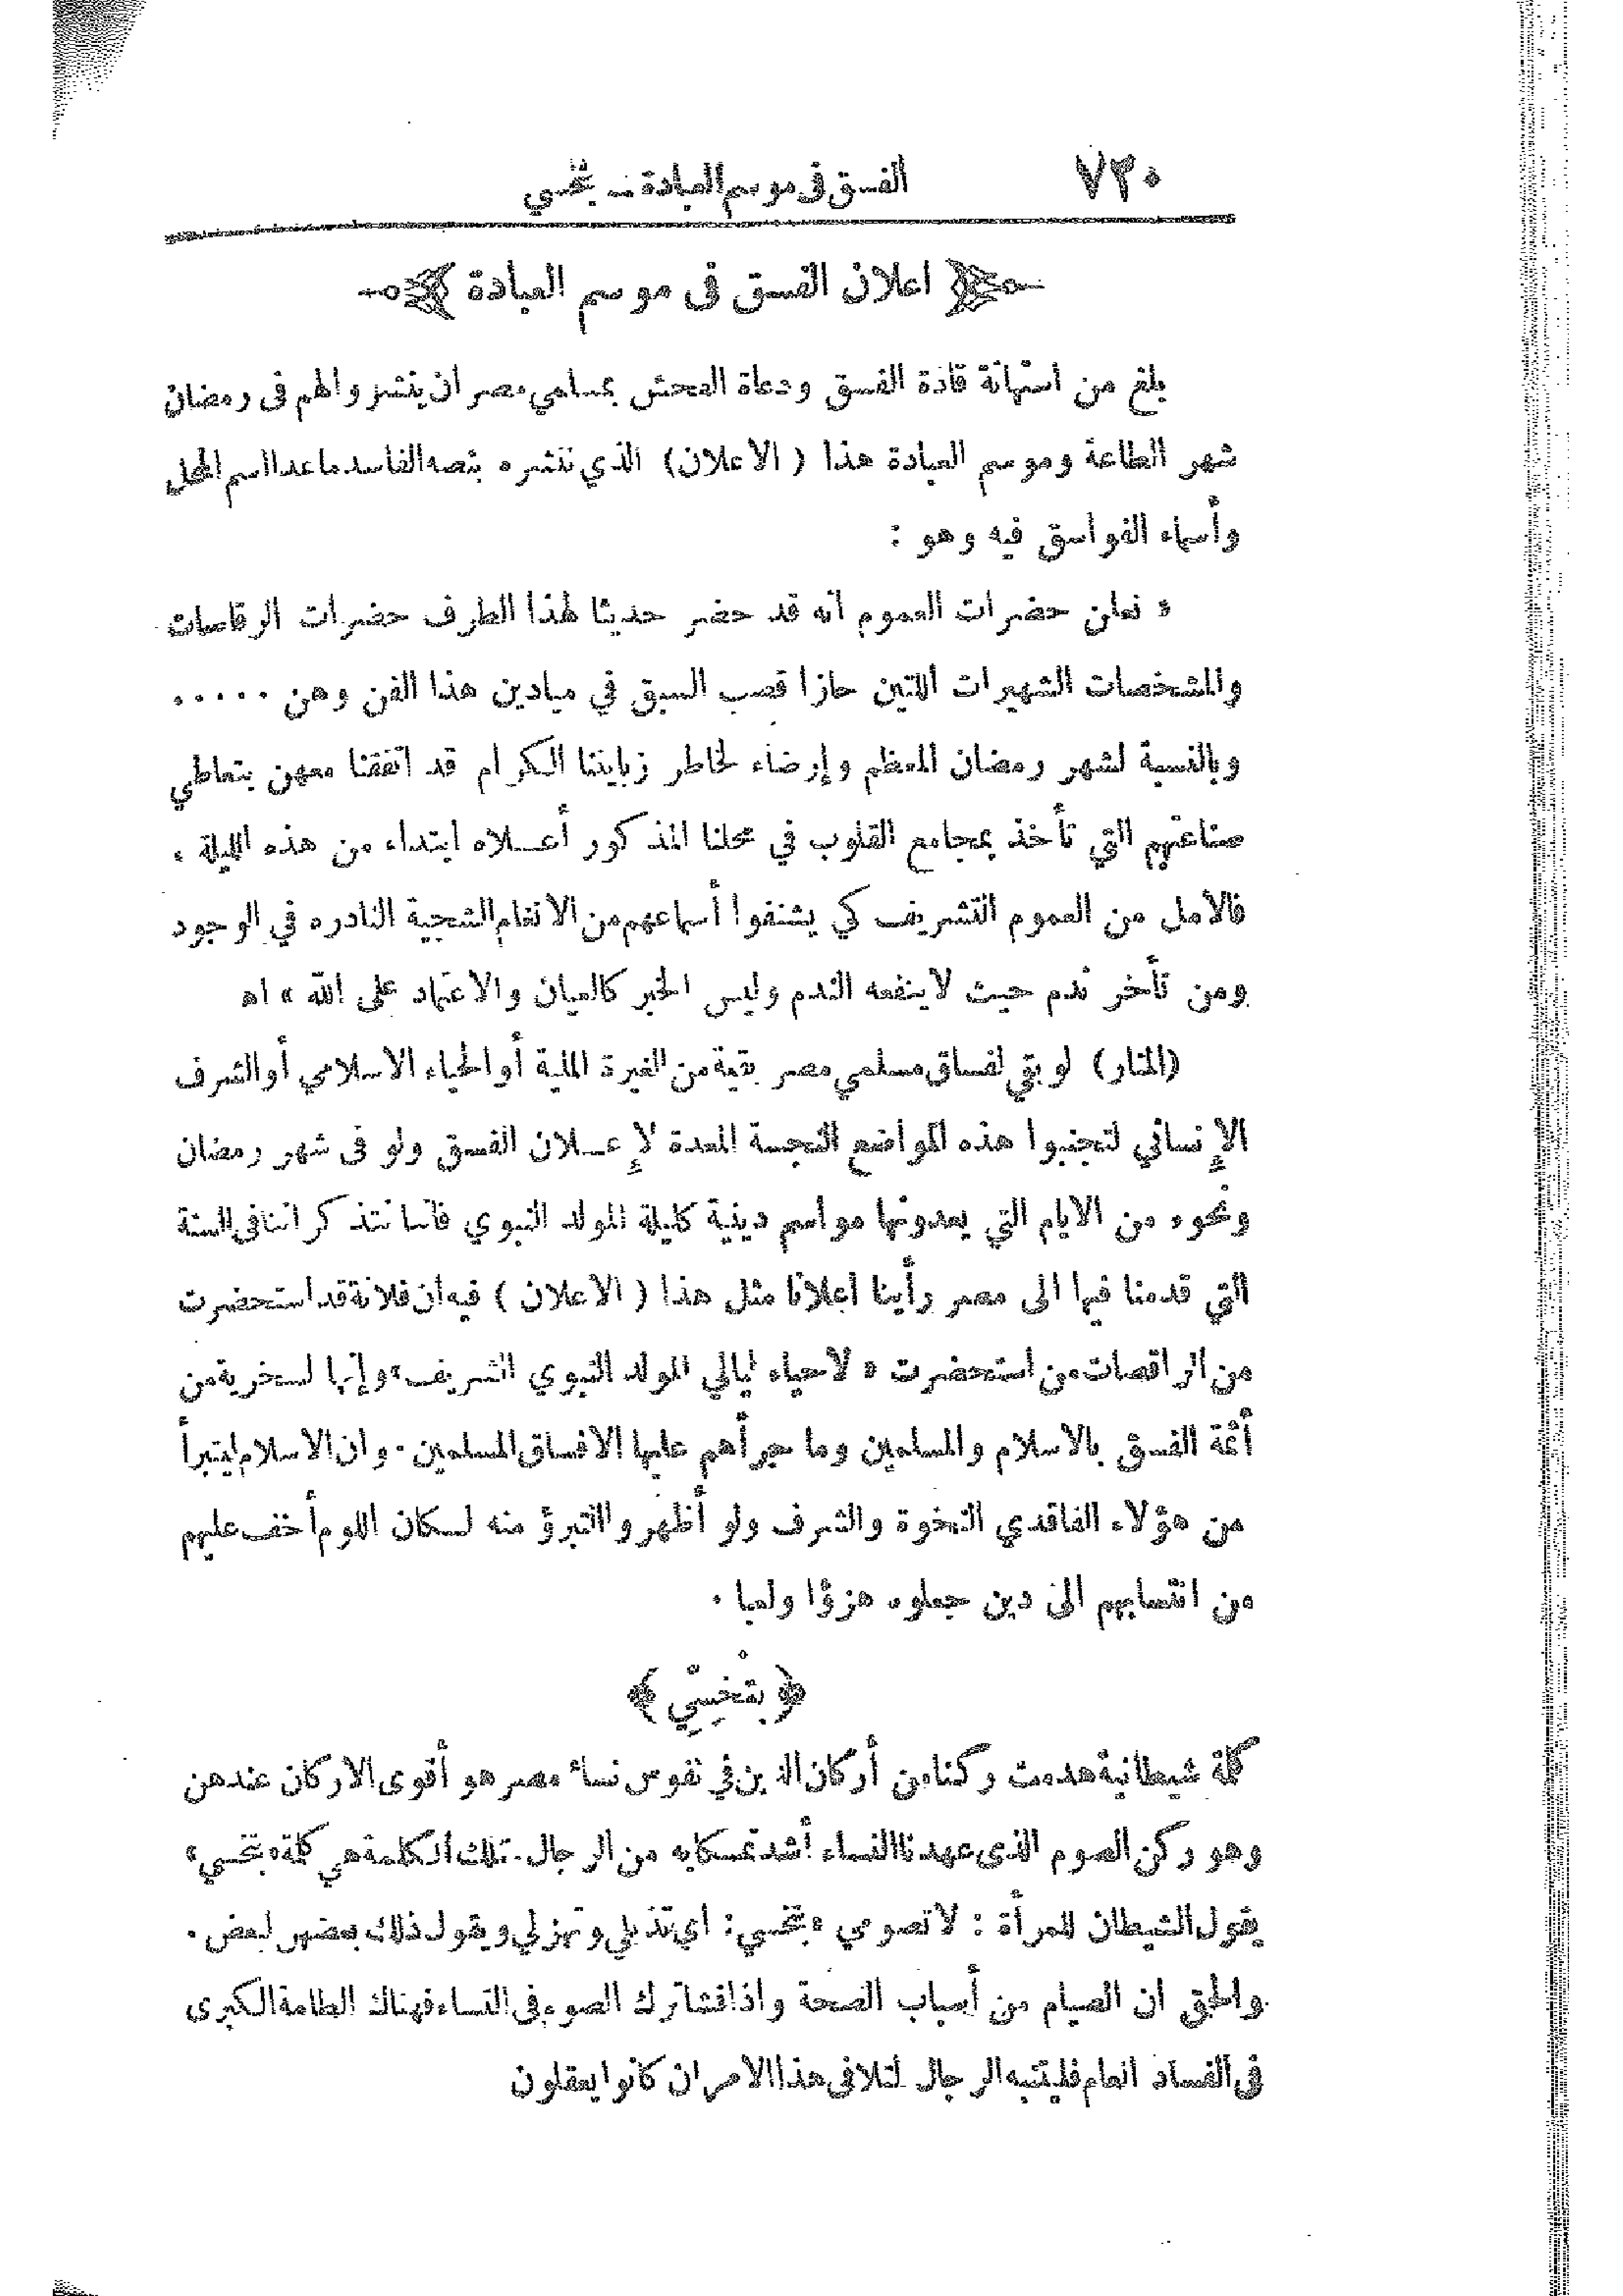 ٧٣٠ الفسق فى موسم العبادة — بتخسي
اعلان الفسق فى موسم العبادة
بلغ من استهانة قادة الفسق ودعاة الفحش بمسلمي مصر ان ينشروا لهم فى رمضان
شهر الطاعة وموسم العبادة هذا ( الاعلان) الذي ننشره بنصه الفاسد ماعدا اسم المحل
وأسماء الفواسق فيه وهو :
« نعلن حضرات العموم انه قد حضر حديثا لهذا الطرف حضرات الرقاصات
والمشخصات الشهيرات اللتين حازا قصب السبق في ميادين هذا الفن وهن . . . . .
وبالنسبة لشهر رمضان المعظم وإرضاء لخاطر زبايننا الكرام قد اتفقنا معهن بتعاطي
صناعتهم التي تأخذ بمجامع القلوب في محلنا المذكور أعلاه ابتداء من هذه الليلة .
فالامل من العموم التشريف كي يشنفوا أسماعهم من الانغام الشجية النادره في الوجود
ومن تأخر ندم حيث لاينفعه الندم وليس الخبر كالعيان والاعتماد على الله » اه
(المنار) لو بقي لفساق مسلمي مصر بقية من الغيرة الملية أو الحياء الاسلامي أو الشرف
الإنساني لتجنبوا هذه المواضع النجسة المعدة لإعلان الفسق ولو فى شهر رمضان
ونحوه من الايام التي يعدونها مواسم دينية كليلة المولد النبوي فاننا نتذكر اننا في السنة
التي قدمنا فيها الى مصر رأينا اعلانا مثل هذا ( الاعلان ) فيه ان فلانة قد استحضرت
من الراقصات من استحضرت « لاحياء ليالي المولد النبوي الشريف» وإنها لسخرية من
أئمة الفسق بالاسلام والمسلمين وما جرأهم عليها الا فساق المسلمين . وان الاسلام ليتبرأ
من هؤلاء الفاقدي النخوة والشرف ولو أظهروا التبرؤ منه لكان اللوم أخف عليهم
من انتسابهم الى دين جعلوه هزؤا ولعبا .
﴿ بتخسِّي ﴾
كلمة شيطانية هدمت ركنا من أركان الدين في نفوس نساء مصر هو أقوى الاركان عندهن
وهو ركن الصوم الذى عهدنا النساء أشد تمسكا به من الرجال . تلك الكلمة هي كلمة «بتخسي»
يقول الشيطان للمرأة : لا تصومي «بتخسي: أي تذبلي وتهزلي ويقول ذلك بعضهن لبعض .
والحق ان الصيام من أسباب الصحة واذا فشا ترك الصوم فى النساء فهناك الطامة الكبرى
فى الفساد العام فليتنبه الرجال لتلافى هذا الامر ان كانوا يعقلون